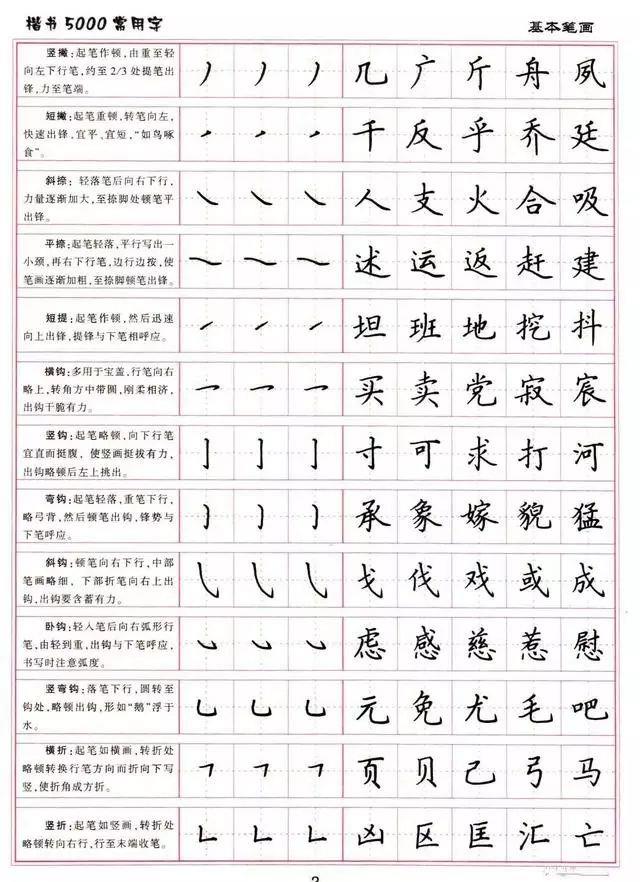 楷书5000常用字 基本笔画
竖撇：起笔作顿，由重至轻
向左下行笔，约至2/3处提笔出
锋，力至笔端。
丿 丿 丿 几 广 斤 舟 夙
短撇：起笔重顿，转笔向左，
快速出锋，宜平、宜短，“如鸟啄
食”。
千 反 乎 乔 廷
斜捺：轻落笔后向右下行，
力量逐渐加大，至捺脚处顿笔平
出锋。
人 支 火 合 吸
平捺：起笔轻落，平行写出一
小颈，再右下行笔，边行边按，使
笔画逐渐加粗，至捺脚顿笔出锋。
述 运 返 赶 建
短提：起笔作顿，然后迅速
向上出锋，提锋与下笔相呼应。
坦 班 地 挖 抖
横钩：多用于宝盖，行笔向右
略上，转角方中带圆，刚柔相济，
出钩干脆有力。
买 卖 党 寂 宸
竖钩：起笔略顿，向下行笔
宜直而挺腹，使竖画挺拔有力，
出钩略顿后左上挑出。
亅 亅 亅 寸 可 求 打 河
弯钩：起笔轻落，重笔下行，
略弓背，然后顿笔出钩，锋势与
下笔呼应。
承 象 嫁 貌 猛
斜钩：顿笔向右下行，中部
笔画略细，下部折笔向右上出
钩，出钩要含蓄有力。
戈 伐 戏 或 成
卧钩：轻入笔后向右弧形行
笔，由轻到重，出钩与下笔呼应，
书写时注意弧度。
虑 感 慈 惹 慰
竖弯钩：落笔下行，圆转至
钩处，略顿出钩，形如“鹅”浮于
水。
乚 乚 乚 元 免 尤 毛 吧
横折：起笔如横画，转折处
略顿转换行笔方向而折向下写
竖，使折角成方折。
页 贝 己 弓 马
竖折：起笔如竖画，转折处
略顿转向右行，行至末端收笔。
凶 区 匡 汇 亡